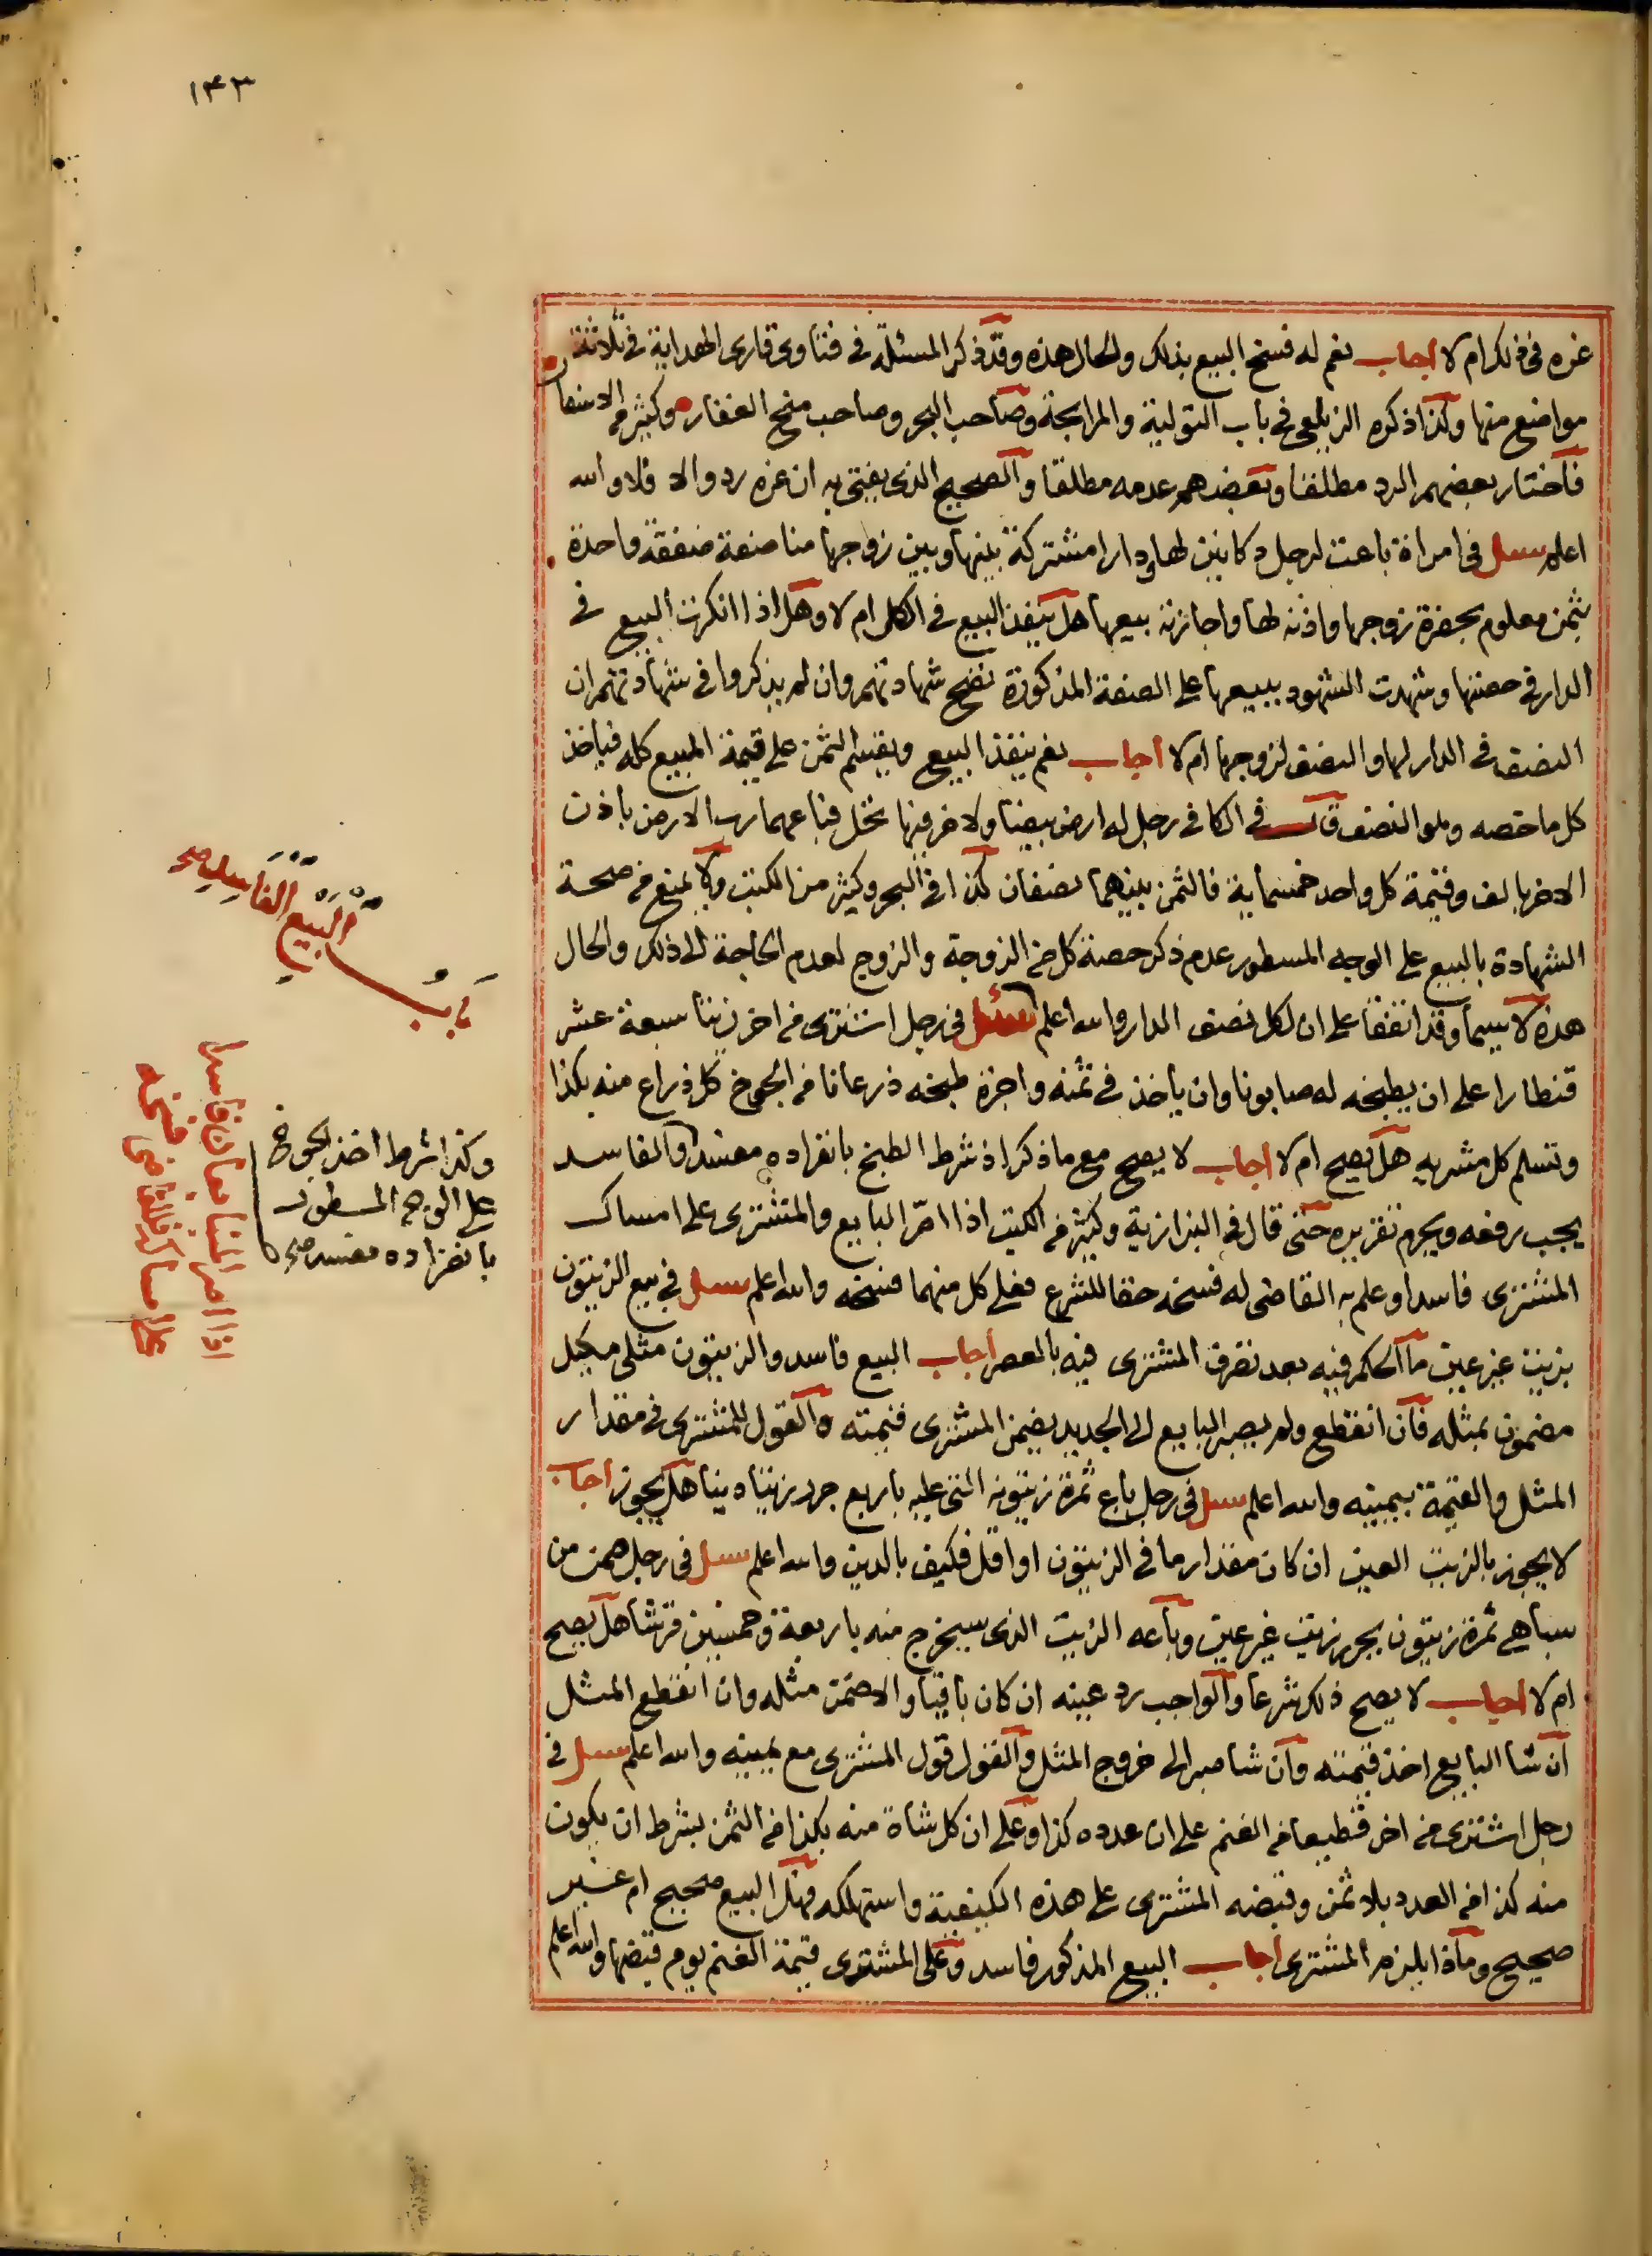 ١٤٣
غره في ذلك ام لا اجاب نعم له فسخ البيع بذلك والحال هذه وقد ذكر المسئلة في فتاوى قارى الهداية في ثلاثة
مواضع منها وكذا ذكره الزيلعي في باب التولية والمرابحة وصاحب البحر وصاحب منح الغفار وكثير من الاسفار
فاختار بعضهم الرد مطلقا وبعضهم عدمه مطلقا والصحيح الذى يفتى به ان غره رد والا فلا والله
اعلم سئل في امراة باعت لرجل دكانين لها ودارا مشتركة بينها وبين زوجها مناصفة صفقة واحدة
بثمن معلوم بحضرة زوجها واذنه لها واجازته بيعها هل ينفذ البيع في الكل ام لا وهل اذا انكرت البيع في
الدار في حصتها وشهدت الشهود ببيعها على الصفة المذكورة تصح شهادتهم وان لم يذكروا في شهادتهم ان
النصف في الدار لها والنصف لزوجها ام لا اجاب نعم ينفذ البيع ويقسم الثمن على قيمة المبيع كله فياخذ
كل ما خصه وهو النصف قال في الكافي رجل له ارض بيضا ولاخر فيها نخل فباعهما رب الارض باذن
الاخر بالف وقيمة كل واحد خمسماية فالثمن بينهما نصفان كذا في البحر وكثير من الكتب ولا يمنع من صحة
الشهادة بالبيع على الوجه المسطور عدم ذكر حصة كل من الزوجة والزوج لعدم الحاجة الى ذلك والحال
هذه لا سيما وقد اتفقا على ان لكل نصف الدار والله اعلم سئل في رجل اشترى من اخر زيتا سبعة عشر
قنطارا على ان يطبخه له صابونا وان ياخذ في ثمنه واجرة طبخه ذرعانا من الجوخ كل ذراع منه بكذا
وتسلم كل مشريه هل يصح ام لا اجاب لا يصح مع ما ذكر اذ شرط الطبخ بانفراده مفسد والفاسد
يجب رفعه ويحرم تقريره حتى قال في البزازية وكثير من الكتب اذا اصر البايع والمشترى على امساك
المشترى فاسدا وعلم به القاضى له فسخه حقا للشرع فعلى كل منهما فسخه والله اعلم سئل في بيع الزيتون
بزيت غير عين ما الحكم فيه بعد تصرف المشترى فيه بالعصر اجاب البيع فاسد والزيتون مثلى مكيل
مضمون بمثله فان انقطع ولم يصبر البايع الى الجديد يضمن المشترى قيمته والقول للمشترى في مقدار
المثل والقيمة بيمينه والله اعلم سئل في رجل باع ثمرة زيتونه التي عليه باربع جرر زيتا دينا هل يجوز اجاب
لا يجوز بالزيت العين ان كان مقدار ما في الزيتون او اقل فكيف بالدين والله اعلم سئل في رجل ضمن من
سباهى ثمرة زيتون بجرر زيت غير عين وباعه الزيت الذى سيخرج منه باربعة وخمسين قرشا هل يصح
ام لا اجاب لا يصح ذلك شرعا والواجب رد عينه ان كان باقيا والا ضمن مثله وان انقطع المثل
ان شا البايع اخذ قيمته وان شا صبر الى خروج المثل والقول قول المشترى مع يمينه والله اعلم سئل في
رجل اشترى من اخر قطيعا من الغنم على ان عدده كذا وعلى ان كل شاة منه بكذا من الثمن بشرط ان يكون
منه كذا من العدد بلا ثمن وقبضه المشترى على هذه الكيفية واستهلكه فهل البيع صحيح ام غير
صحيح وماذا يلزم المشترى اجاب البيع المذكور فاسد وعلى المشترى قيمة الغنم يوم قبضها والله اعلم
باب البيع الفاسد صح
وكذا شرط اخذ الجوخ
على الوجه المسطور
بانفراده مفسد صح
اذا اصر المتبايعان فاسدا
على امساكه فللقاضى فسخه